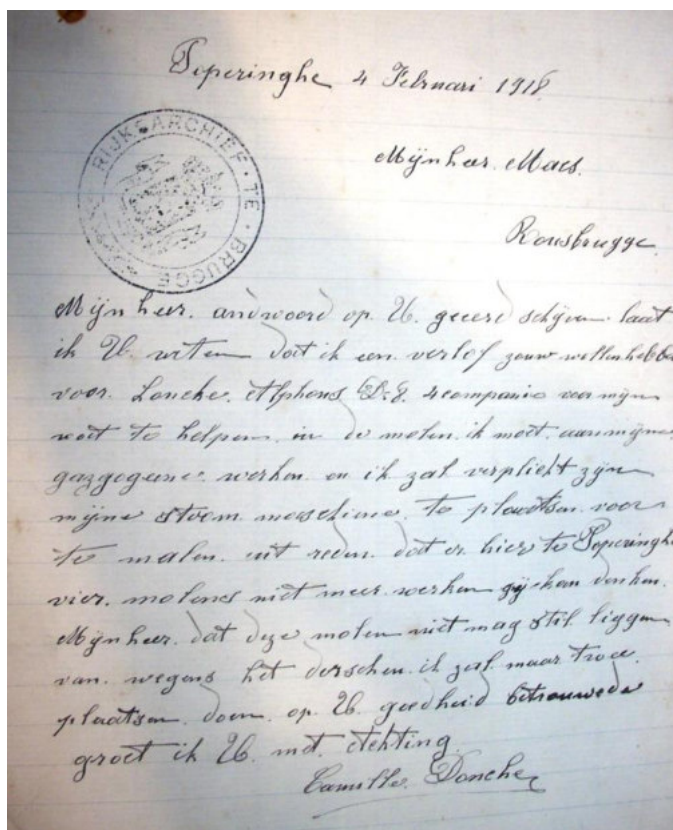 Poperinghe 4 Februari 1918.
RIJKSARCHIEF · TE · BRUGGE
Mijnheer. Maes.
Rousbrugge
Mijnheer. andwoord op U. geeerd schijven laat
ik U. weten dat ik een verlof zouw willen hebbe
voor. Loncke. Alphons 4 companie voor mijn
wat te helpen. in de molen. ik moet. aan mijne
gazgogeene. werken en ik zal verplicht zijn
mijne stoom. maschiene. te plaatsen voor
te malen. uit reden. dat er hier te Poperinghe
vier. molens niet meer. werken gij kan denken.
Mijnheer. dat deze molen niet mag stil liggen
van. wegens het derschen. ik zal. maar twee.
plaatsen. doen. op U. goedheid betrouwede
groet ik U. met. Achting.
Camille. Doncke